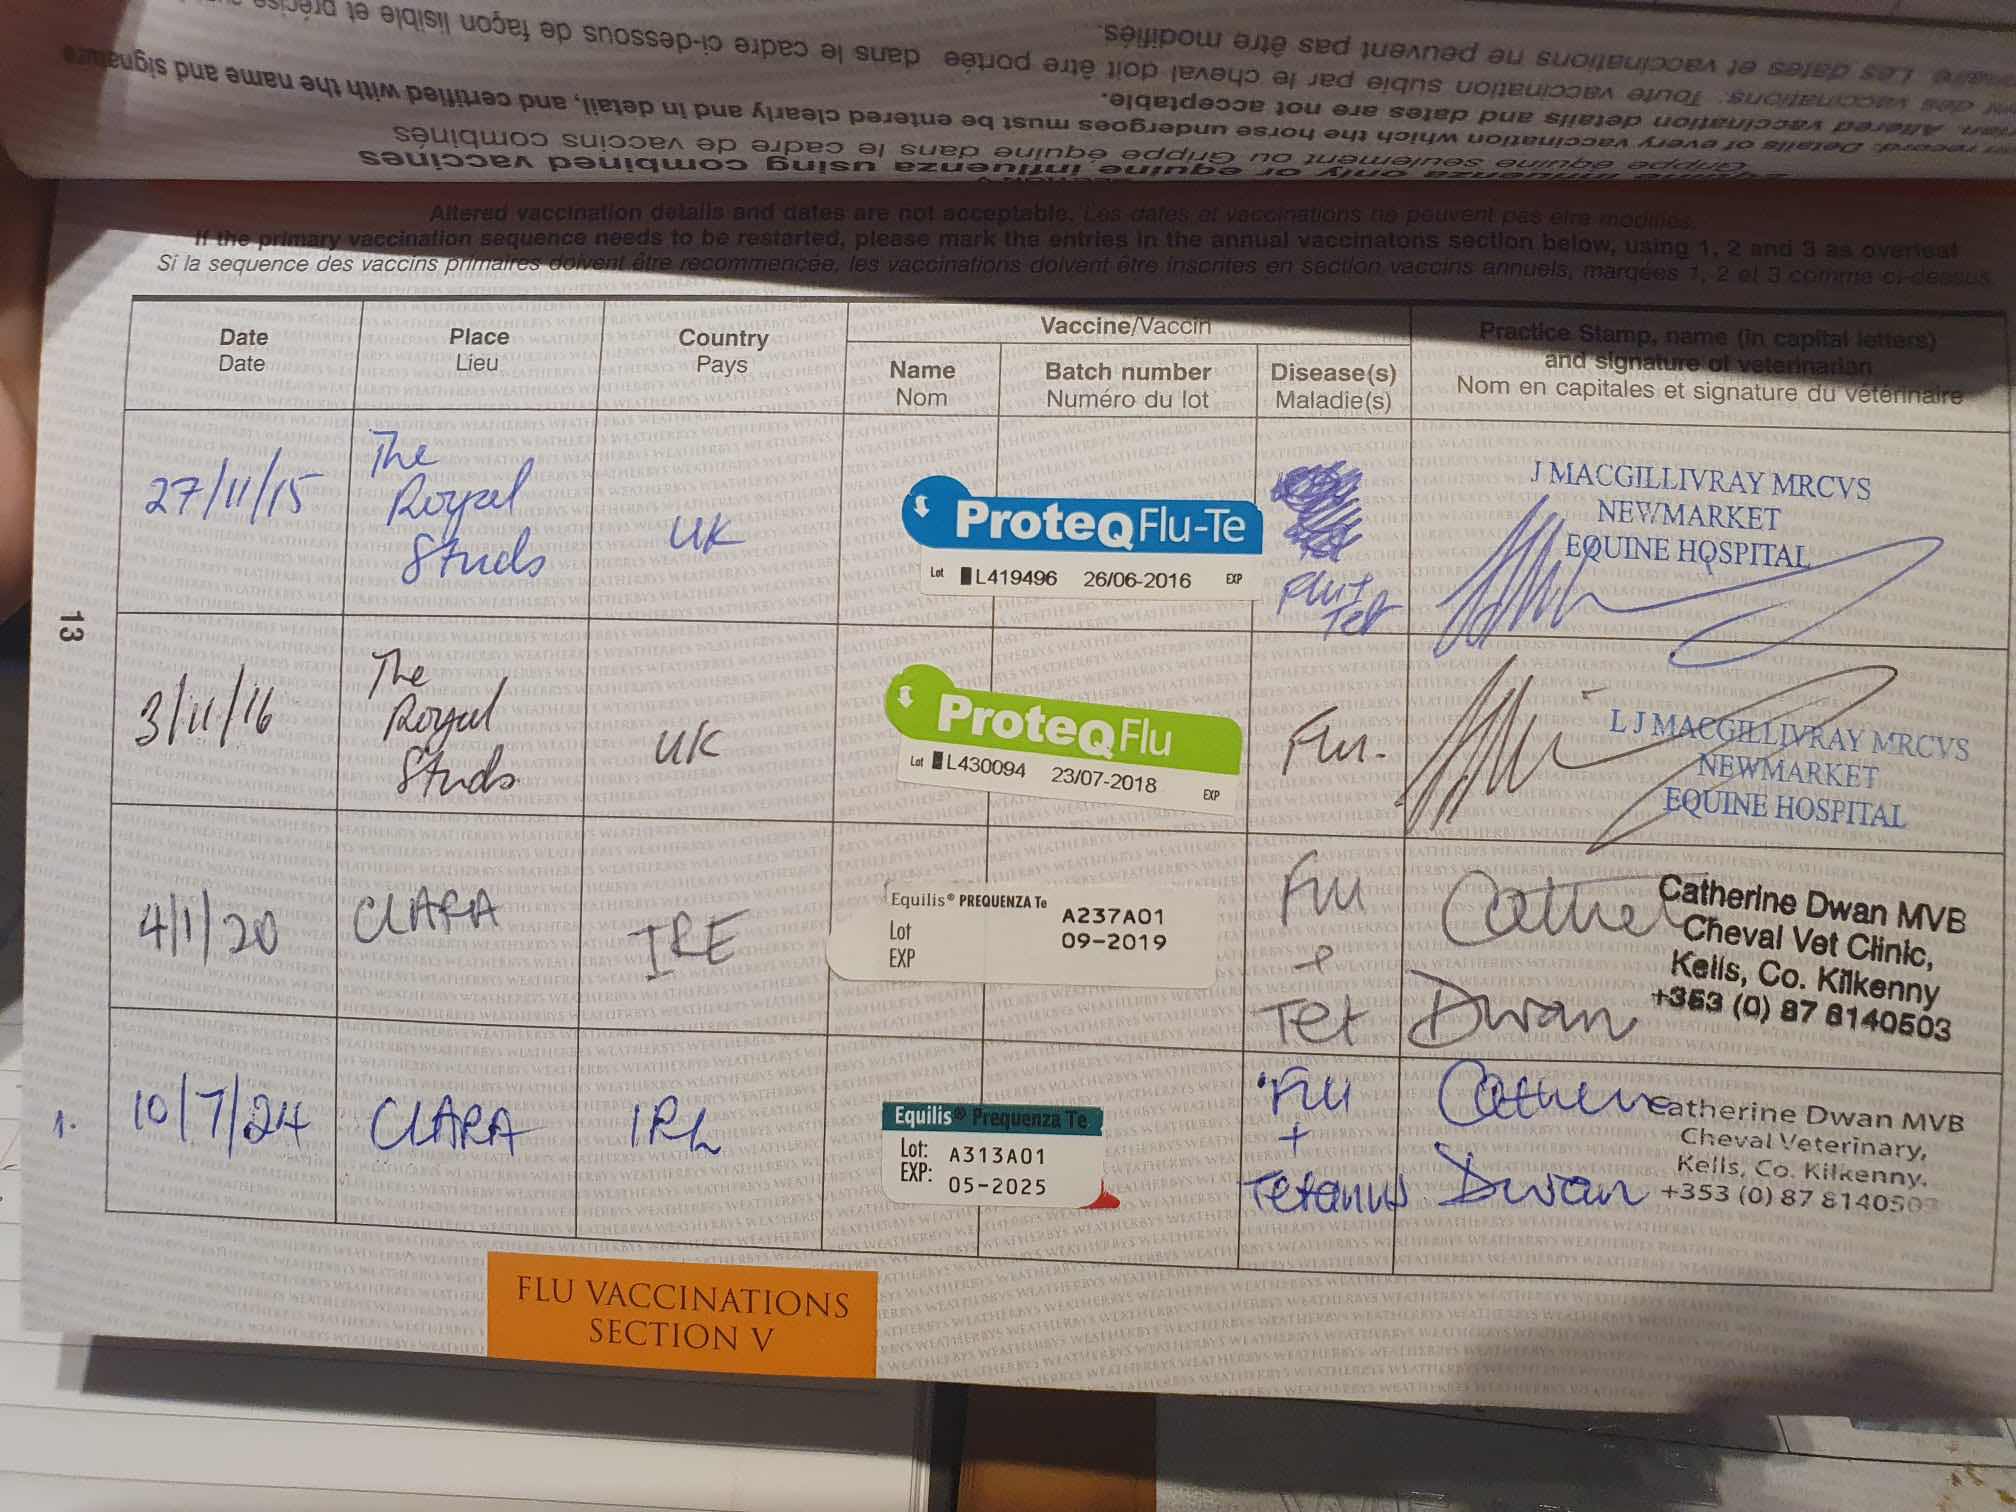 ire. Les dates et vaccinations ne peuvent pas être modifiés.
des vaccinations. Toute vaccination subie par le cheval doit être portée dans le cadre ci-dessous de façon lisible et précise
Altered vaccination details and dates are not acceptable.
record. Details of every vaccination which the horse undergoes must be entered clearly and in detail, and certified with the name and signature
Grippe équine seulement ou Grippe équine dans le cadre de vaccins combinés
influenza only or equine influenza using combined vaccines
Altered vaccination details and dates are not acceptable. Les dates et vaccinations ne peuvent pas etre modifiés.
If the primary vaccination sequence needs to be restarted, please mark the entries in the annual vaccinatons section below, using 1, 2 and 3 as overleaf
Si la sequence des vaccins primaires doivent être recommencée, les vaccinations doivent être inscrites en section vaccins annuels, marqées 1, 2 et 3 comme ci-dessus.
Date
Date
Place
Lieu
Country
Pays
Vaccine/Vaccin
Name
Nom
Batch number
Numéro du lot
Disease(s)
Maladie(s)
Practice Stamp, name (in capital letters)
and signature of veterinarian
Nom en capitales et signature du vétérinaire
27/11/15
The
Royal
Studs
UK
ProteqFlu-Te
Lot L419496 26/06-2016 EXP
Flu+
Tet
J MACGILLIVRAY MRCVS
NEWMARKET
EQUINE HOSPITAL
13
3/11/16
The
Royal
Studs
UK
ProteqFlu
Lot L430094 23/07-2018 EXP
Flu.
L J MACGILLIVRAY MRCVS
NEWMARKET
EQUINE HOSPITAL
4/1/20
CLARA
IRE
Equilis® PREQUENZA Te
Lot A237A01
EXP 09-2019
Flu
+
Tet
Dwan
Catherine Dwan MVB
Cheval Vet Clinic,
Kells, Co. Kilkenny
+353 (0) 87 8140503
1.
10/7/24
CLARA
IRL
Equilis® Prequenza Te
Lot: A313A01
EXP: 05-2025
Flu
+
Tetanus
Dwan
Catherine Dwan MVB
Cheval Veterinary,
Kells, Co. Kilkenny.
+353 (0) 87 8140503
FLU VACCINATIONS
SECTION V